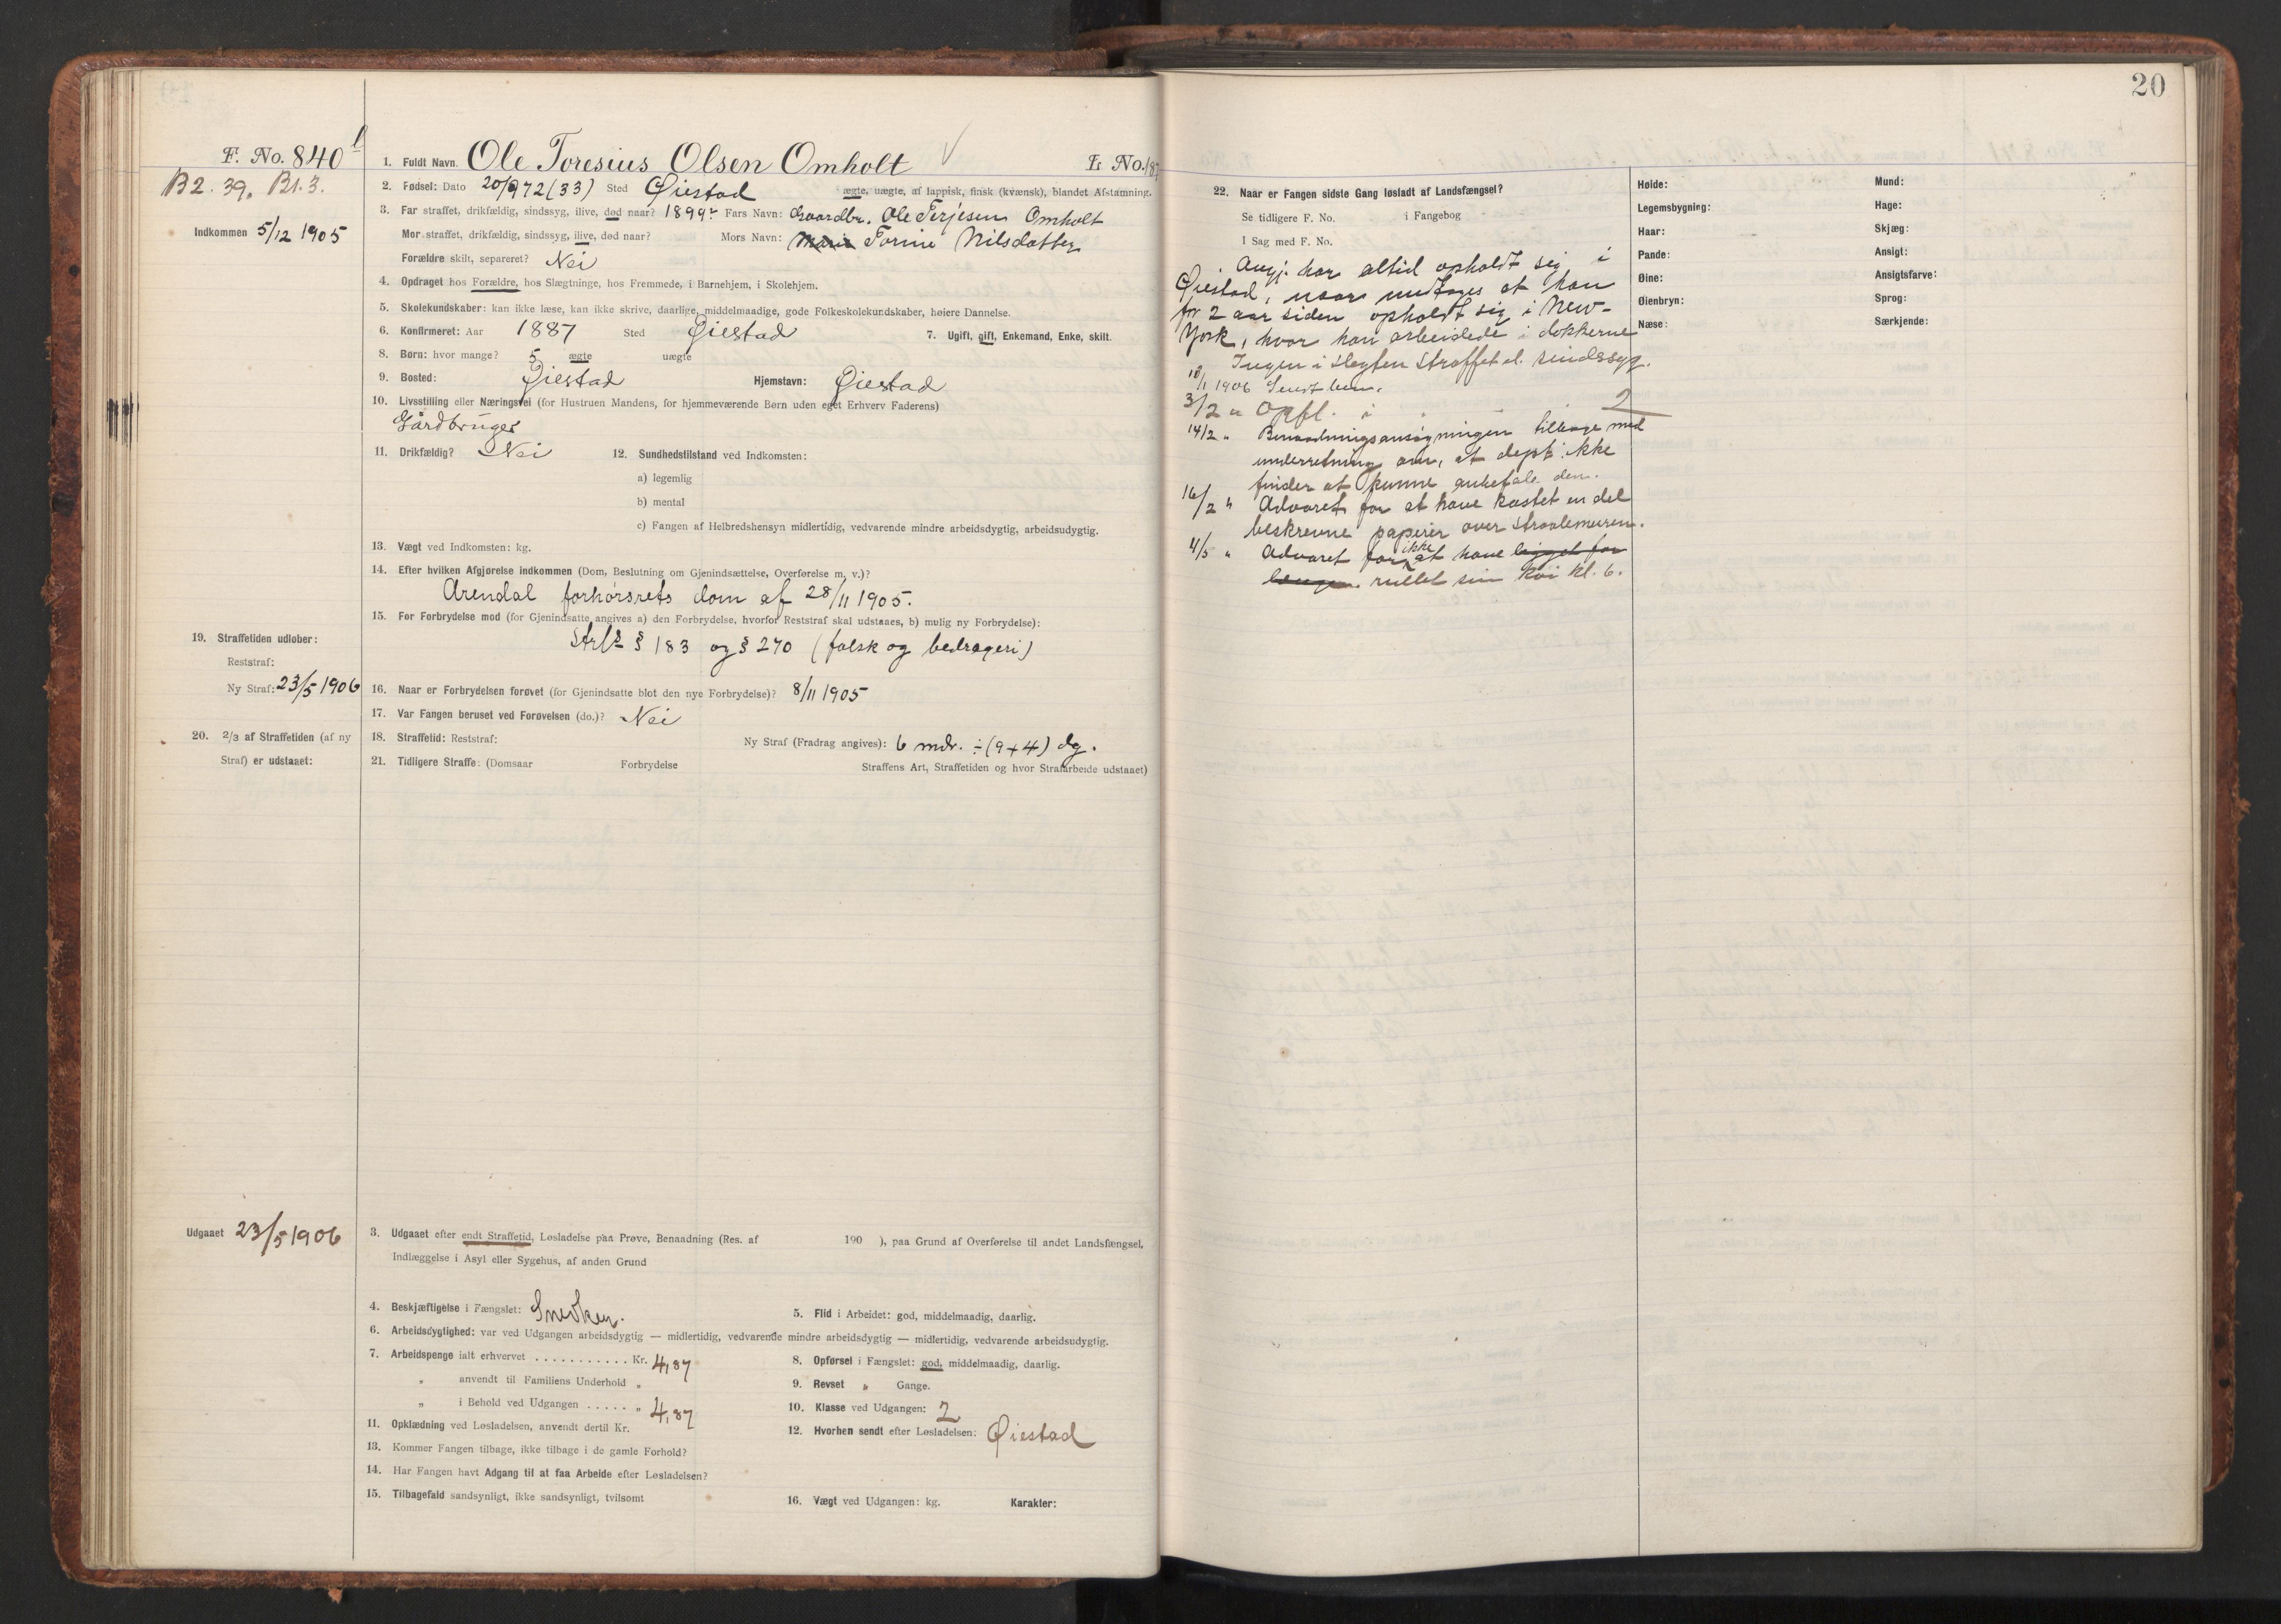 F. No. 840
B2. 39. Bl. 3.
Indkommen 5/12 1905
1. Fuldt Navn. Ole Toresius Olsen Omholt
L. No.
2. Fødsel: Dato 20/9 72 (33) Sted Øiestad ægte, uægte, af lappisk, finsk (kvænsk), blandet Afstamning.
3. Far straffet, drikfældig, sindssyg, ilive, død naar? 1899 Fars Navn: Gaardbr. Ole Terjesen Omholt
Mor straffet, drikfældig, sindssyg, ilive, død naar? Mors Navn: Marie Torine Nilsdatter
Forældre skilt, separeret? Nei
4. Opdraget hos Forældre, hos Slægtninge, hos Fremmede, i Barnehjem, i Skolehjem.
5. Skolekundskaber: kan ikke læse, kan ikke skrive, daarlige, middelmaadige, gode Folkeskolekundskaber, høiere Dannelse.
6. Konfirmeret: Aar 1887 Sted Øiestad 7. Ugift, gift, Enkemand, Enke, skilt.
8. Børn: hvor mange? 5 ægte uægte
9. Bosted: Øiestad Hjemstavn: Øiestad
10. Livsstilling eller Næringsvei (for Hustruen Mandens, for hjemmeværende Børn uden eget Erhverv Faderens)
Gårdbruger
11. Drikfældig? Nei 12. Sundhedstilstand ved Indkomsten:
a) legemlig
b) mental
c) Fangen af Helbredshensyn midlertidig, vedvarende mindre arbeidsdygtig, arbeidsudygtig.
13. Vægt ved Indkomsten: kg.
14. Efter hvilken Afgjørelse indkommen (Dom, Beslutning om Gjenindsættelse, Overførelse m. v.)?
Arendal forhørsrets dom af 28/11 1905.
15. For Forbrydelse mod (for Gjenindsatte angives a) den Forbrydelse, hvorfor Reststraf skal udstaaes, b) mulig ny Forbrydelse):
Strl § 183 og § 270 (falsk og bedrageri)
19. Straffetiden udløber:
Reststraf:
Ny Straf: 23/5 1906
16. Naar er Forbrydelsen forøvet (for Gjenindsatte blot den nye Forbrydelse)? 8/11 1905
17. Var Fangen beruset ved Forøvelsen (do.)? Nei
20. 2/3 af Straffetiden (af ny
Straf) er udstaaet:
18. Straffetid: Reststraf: Ny Straf (Fradrag angives): 6 mdr. ÷ (9+4) dg.
21. Tidligere Straffe: (Domsaar Forbrydelse Straffens Art, Straffetiden og hvor Strafarbeide udstaaet)
Udgaaet 23/5 1906
3. Udgaaet efter endt Straffetid, Løsladelse paa Prøve, Benaadning (Res. af 190 ), paa Grund af Overførelse til andet Landsfængsel,
Indlæggelse i Asyl eller Sygehus, af anden Grund
4. Beskjæftigelse i Fængslet: Snedker. 5. Flid i Arbeidet: god, middelmaadig, daarlig.
6. Arbeidsdygtighed: var ved Udgangen arbeidsdygtig — midlertidig, vedvarende mindre arbeidsdygtig — midlertidig, vedvarende arbeidsudygtig.
7. Arbeidspenge ialt erhvervet . . . . . . . . . . . Kr. 4,87 8. Opførsel i Fængslet: god, middelmaadig, daarlig.
„ anvendt til Familiens Underhold „ 9. Revset „ Gange.
„ i Behold ved Udgangen . . . . . „ 4,87 10. Klasse ved Udgangen: 2
11. Opklædning ved Løsladelsen, anvendt dertil Kr. 12. Hvorhen sendt efter Løsladelsen: Øiestad
13. Kommer Fangen tilbage, ikke tilbage i de gamle Forhold?
14. Har Fangen havt Adgang til at faa Arbeide efter Løsladelsen?
15. Tilbagefald sandsynligt, ikke sandsynligt, tvilsomt 16. Vægt ved Udgangen: kg. Karakter:
20
22. Naar er Fangen sidste Gang løsladt af Landsfængsel?
Se tidligere F. No. i Fangebog
I Sag med F. No.
Angj. har altid opholdt sig i
Øiestad, naar undtages at han
for 2 aar siden opholdt sig i New-
York, hvor han arbeidede i dokkerne
Ingen i slegten straffet el. sindssyg.
1906
3/2 „ Opfl. i 2
14/2 „ Benaadningsansøgningen tilbage med
underretning om, at dept. ikke
finder at kunne anbefale den.
16/2 „ Advaret for at have kastet en del
beskrevne papirer over straalemuren.
4/5 „ Advaret for ikke at have ligget for
længe rullet sin køi kl. 6.
Høide:
Legemsbygning:
Haar:
Pande:
Øine:
Øienbryn:
Næse:
Mund:
Hage:
Skjæg:
Ansigt:
Ansigtsfarve:
Sprog:
Særkjende: